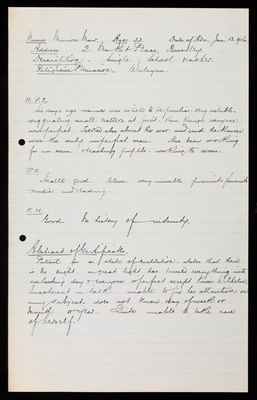 Name: Age 22. Date of Adm. Jan. 13. 1916.
Address 2. Market Place
Description. Single, School teacher.
Religious Persuasion. Wesleyan
H.P.C.
days ago was noticed to be peculiar, very voluble,
small matters at first, then everyone
imperfect. Talked also about the war and said the Kaiser
was the only imperfect man. Has been working
for an exam. & teaching pupils - working to excess.
P.H.
Health good. Clever. very
music and reading.
F.H.
Good. No history of insanity.
Abstract of Certificate.
Patient in a state of exaltation. states that there
is no night. a great light has turned everything into
everlasting day & everyone is perfect except Kaiser Wilhelm.
Incoherent in talk. unable to fix her attention on
any subject. does not know day of week or
month or year. Quite unable to take care
of herself.